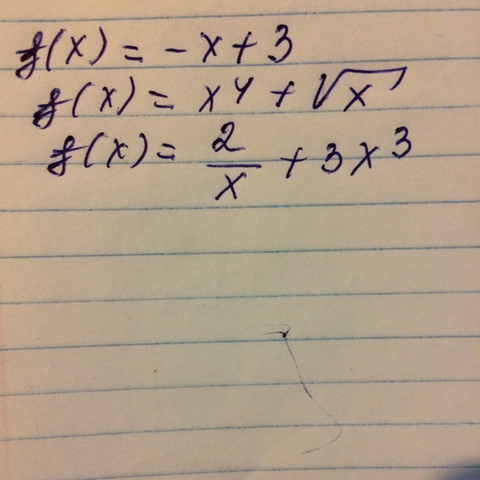 f(x) = -x + 3
f(x) = x⁴ + √x
f(x) = 2/x + 3x³